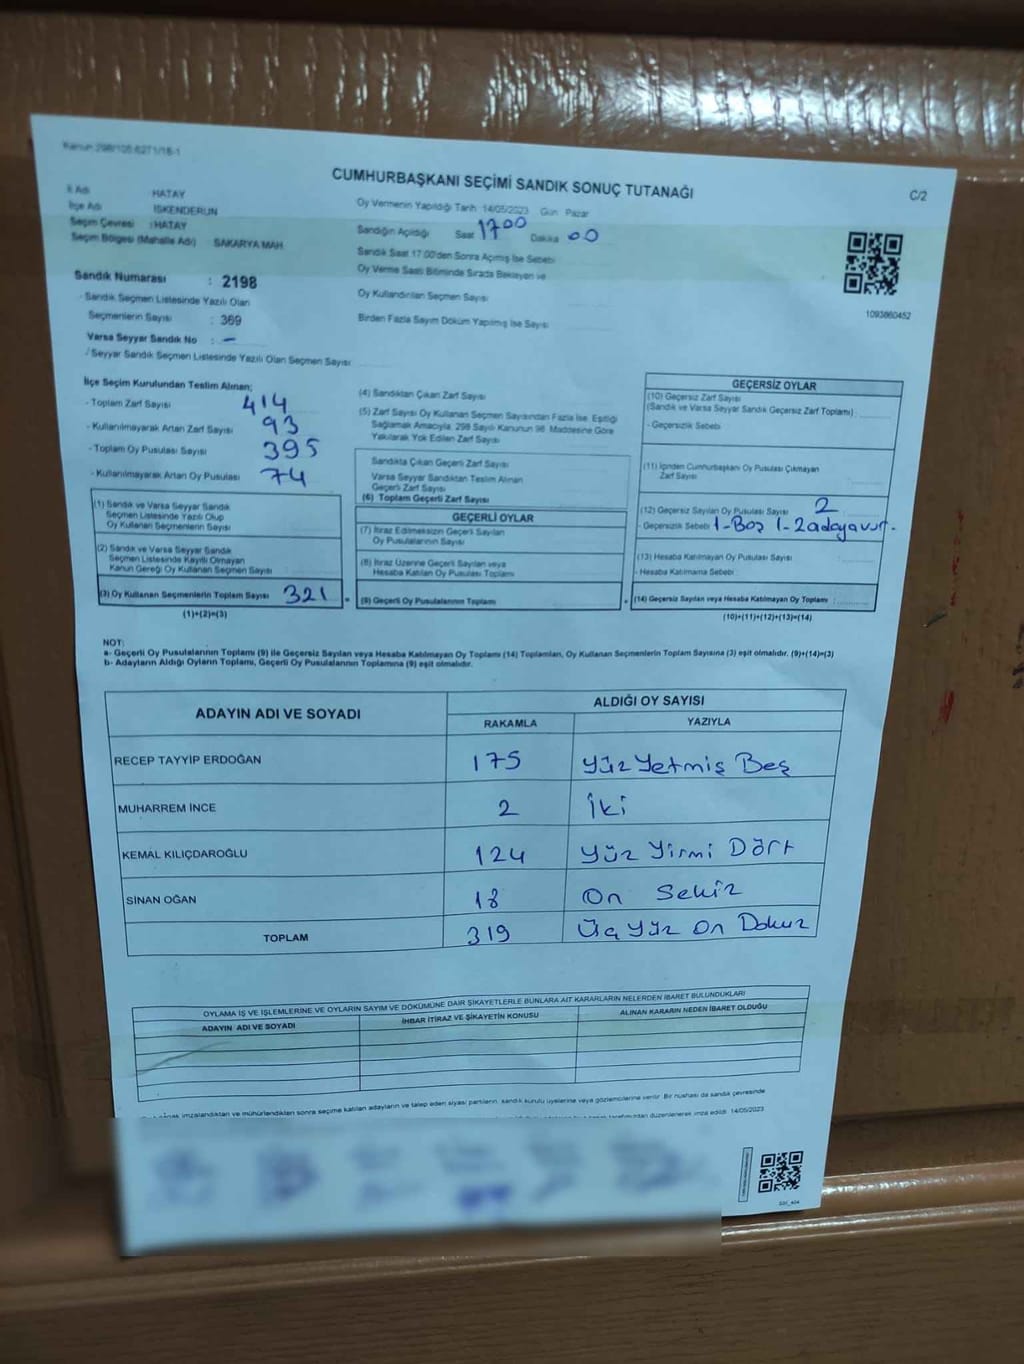 Kanun:298/105.6271/18-1
CUMHURBAŞKANI SEÇİMİ SANDIK SONUÇ TUTANAĞI
C/2
İl Adı : HATAY
İlçe Adı : İSKENDERUN
Seçim Çevresi : HATAY
Seçim Bölgesi (Mahalle Adı) : SAKARYA MAH.
Oy Vermenin Yapıldığı Tarih :14/05/2023 Gün : Pazar
Sandığın Açıldığı Saat 1700 Dakika 00
Sandık Saat 17.00'den Sonra Açılmış İse Sebebi
Oy Verme Saati Bitiminde Sırada Bekleyen ve
Oy Kullandırılan Seçmen Sayısı
Birden Fazla Sayım Döküm Yapılmış İse Sayısı
1093860452
Sandık Numarası : 2198
- Sandık Seçmen Listesinde Yazılı Olan
Seçmenlerin Sayısı : 369
Varsa Seyyar Sandık No : -
- Seyyar Sandık Seçmen Listesinde Yazılı Olan Seçmen Sayısı
İlçe Seçim Kurulundan Teslim Alınan;
- Toplam Zarf Sayısı 414
- Kullanılmayarak Artan Zarf Sayısı 93
- Toplam Oy Pusulası Sayısı 395
- Kullanılmayarak Artan Oy Pusulası 74
(1) Sandık ve Varsa Seyyar Sandık
Seçmen Listesinde Yazılı Olup
Oy Kullanan Seçmenlerin Sayısı
(2) Sandık ve Varsa Seyyar Sandık
Seçmen Listesinde Kayıtlı Olmayan
Kanun Gereği Oy Kullanan Seçmen Sayısı
(3) Oy Kullanan Seçmenlerin Toplam Sayısı 321
(1)+(2)=(3)
(4) Sandıktan Çıkan Zarf Sayısı
(5) Zarf Sayısı Oy Kullanan Seçmen Sayısından Fazla İse, Eşitliği
Sağlamak Amacıyla, 298 Sayılı Kanunun 98. Maddesine Göre
Yakılarak Yok Edilen Zarf Sayısı
Sandıkta Çıkan Geçerli Zarf Sayısı
Varsa Seyyar Sandıktan Teslim Alınan
Geçerli Zarf Sayısı
(6) Toplam Geçerli Zarf Sayısı
GEÇERLİ OYLAR
(7) İtiraz Edilmeksizin Geçerli Sayılan
Oy Pusulalarının Sayısı
(8) İtiraz Üzerine Geçerli Sayılan veya
Hesaba Katılan Oy Pusulası Toplamı
(9) Geçerli Oy Pusulalarının Toplamı
GEÇERSİZ OYLAR
(10) Geçersiz Zarf Sayısı
(Sandık ve Varsa Seyyar Sandık Geçersiz Zarf Toplamı)
- Geçersizlik Sebebi
(11) İçinden Cumhurbaşkanı Oy Pusulası Çıkmayan
Zarf Sayısı
(12) Geçersiz Sayılan Oy Pusulası Sayısı 2
- Geçersizlik Sebebi 1-Boş 1-2adaya
(13) Hesaba Katılmayan Oy Pusulası Sayısı
- Hesaba Katılmama Sebebi
(14) Geçersiz Sayılan veya Hesaba Katılmayan Oy Toplamı
(10)+(11)+(12)+(13)=(14)
NOT:
a- Geçerli Oy Pusulalarının Toplamı (9) ile Geçersiz Sayılan veya Hesaba Katılmayan Oy Toplamı (14) Toplamları, Oy Kullanan Seçmenlerin Toplam Sayısına (3) eşit olmalıdır. (9)+(14)=(3)
b- Adayların Aldığı Oyların Toplamı, Geçerli Oy Pusulalarının Toplamına (9) eşit olmalıdır.
ADAYIN ADI VE SOYADI
ALDIĞI OY SAYISI
RAKAMLA YAZIYLA
RECEP TAYYİP ERDOĞAN 175 Yüz Yetmiş Beş
MUHARREM İNCE 2 İki
KEMAL KILIÇDAROĞLU 124 Yüz Yirmi Dört
SİNAN OĞAN 18 On Sekiz
TOPLAM 319 Üç Yüz On Dokuz
OYLAMA İŞ VE İŞLEMLERİNE VE OYLARIN SAYIM VE DÖKÜMÜNE DAİR ŞİKAYETLERLE BUNLARA AİT KARARLARIN NELERDEN İBARET BULUNDUKLARI
ADAYIN ADI VE SOYADI İHBAR İTİRAZ VE ŞİKAYETİN KONUSU ALINAN KARARIN NEDEN İBARET OLDUĞU
imzalandıktan ve mühürlendikten sonra seçime katılan adayların ve talep eden siyasi partilerin, sandık kurulu üyelerine veya gözlemcilerine verilir. Bir nüshası da sandık çevresinde
tarafımızdan düzenlenerek imza edildi. 14/05/2023